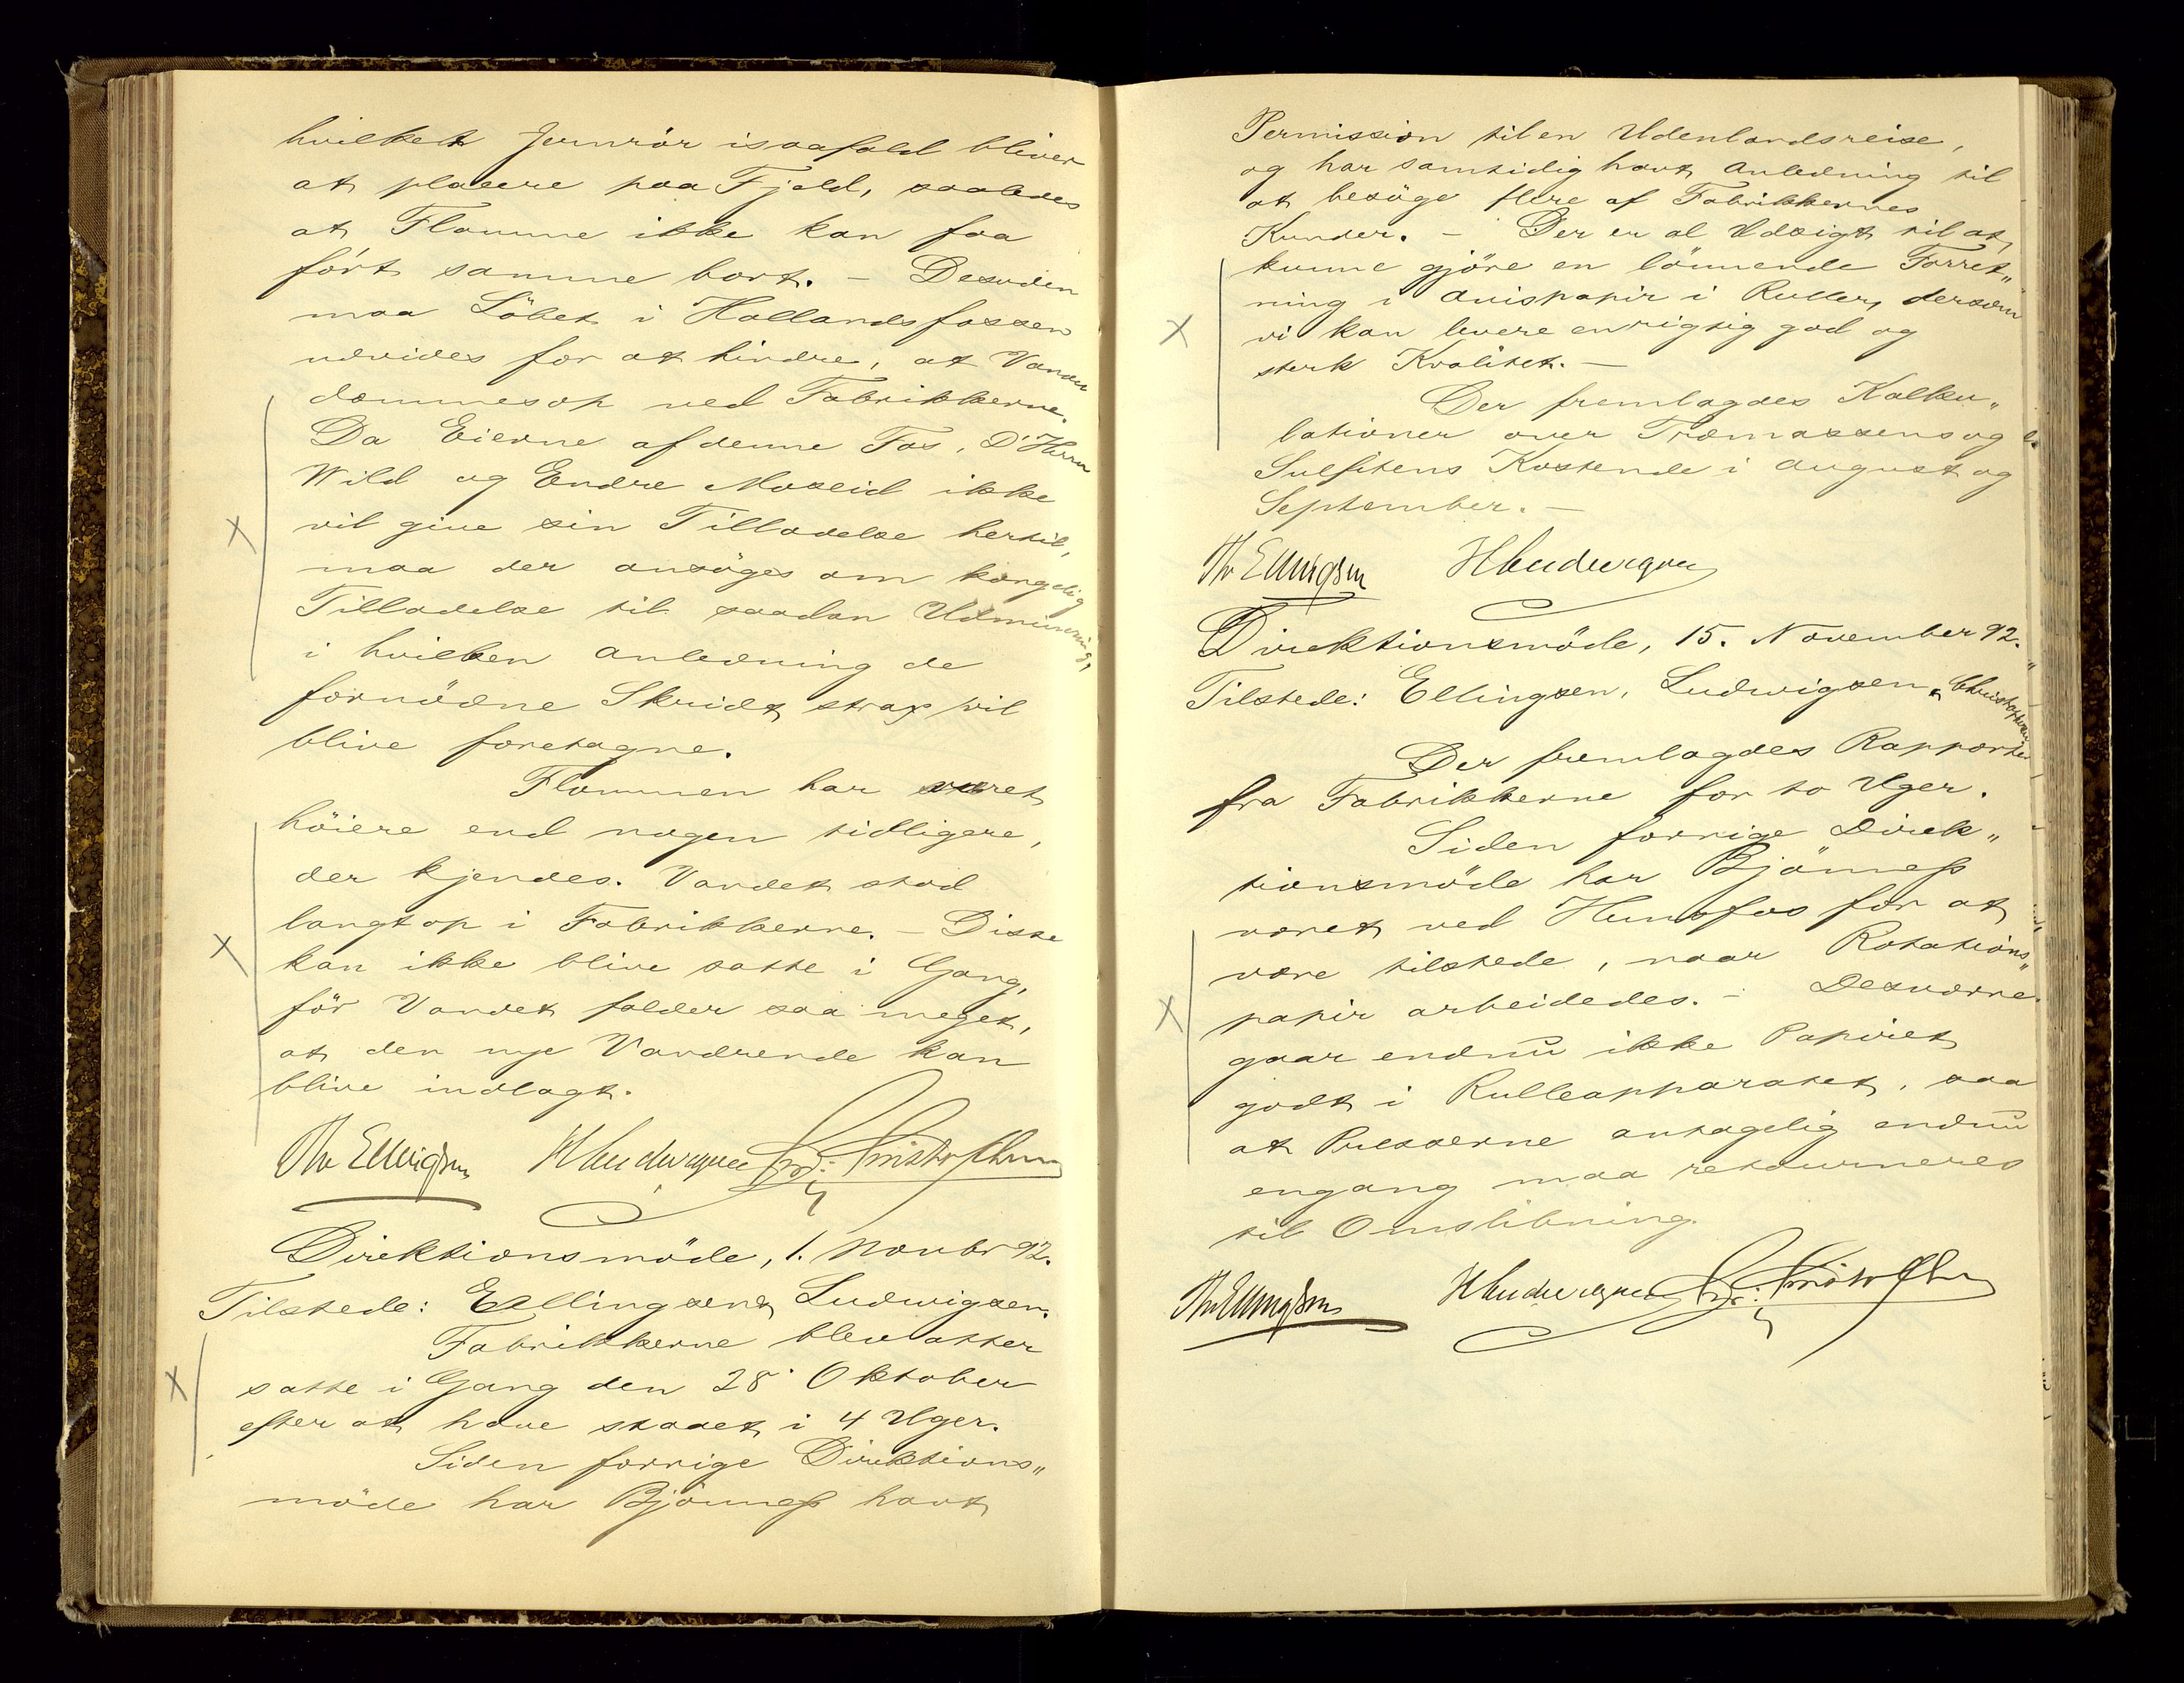 hvilket Jernrör isaafald bliver
at placere paa Fjeld, saaledes
at Flomme ikke kan faa
fört samme bort. – Desuden
maa Löbet i Hallandsfossen
udvides for at hindre, at Vandet
dæmmes op ved Fabrikkerne.
Da Eierne af denne Fos, D'Herrer
Wild og Endre Moseid ikke
vil give sin Tilladelse hertil,
maa der ansöges om kongelig
Tilladelse til saadan Udminering,
i hvilken Anledning de
fornödne Skridt strax vil
blive foretagne.
Flommen har været
höiere end nogen tidligere,
der kjendes. Vandet stod
langt op i Fabrikkerne. – Disse
kan ikke blive satte i Gang,
för Vandet falder saa meget,
at den nye Vandrende kan
blive indlagt.
Th Ellingsen HLudwigsen Chr: Christophersen
Direktionsmöde, 1. Novbr 92.
Tilstede: Ellingsen & Ludwigsen.
Fabrikkerne blev atter
satte i Gang den 28' Oktober
efter at have staaet i 4 Uger.
Siden forrige Direktions„
möde har Bjönness havt
Permission til en Udenlandsreise,
og har samtidig havt Anledning til
at besöge flere af Fabrikkernes
Kunder. – Der er al Udsigt til at
kunne gjöre en lönnende Forret„
ning i Avispapir i Ruller, dersom
vi kan levere en rigtig god og
sterk Kvalitet. –
Der fremlagdes Kalku„
lationer over Træmassens og
Sulfitens Kostende i August og
September. –
Th Ellingsen HLudwigsen
Direktionsmöde, 15. November 92.
Tilstede: Ellingsen, Ludwigsen & Christophersen
Der fremlagdes Rapporter
fra Fabrikkerne for to Uger.
Siden forrige Direk„
tionsmöde har Bjönness
været ved Hunsfos for at
være tilstede, naar Rotations„
papir arbeidedes. – Desværre
gaar endnu ikke Papiret
godt i Rulleapparatet, saa
at Pulserne antagelig endnu
engang maa retourneres
til Omslibning.
Th Ellingsen HLudwigsen Chr: Christophersen